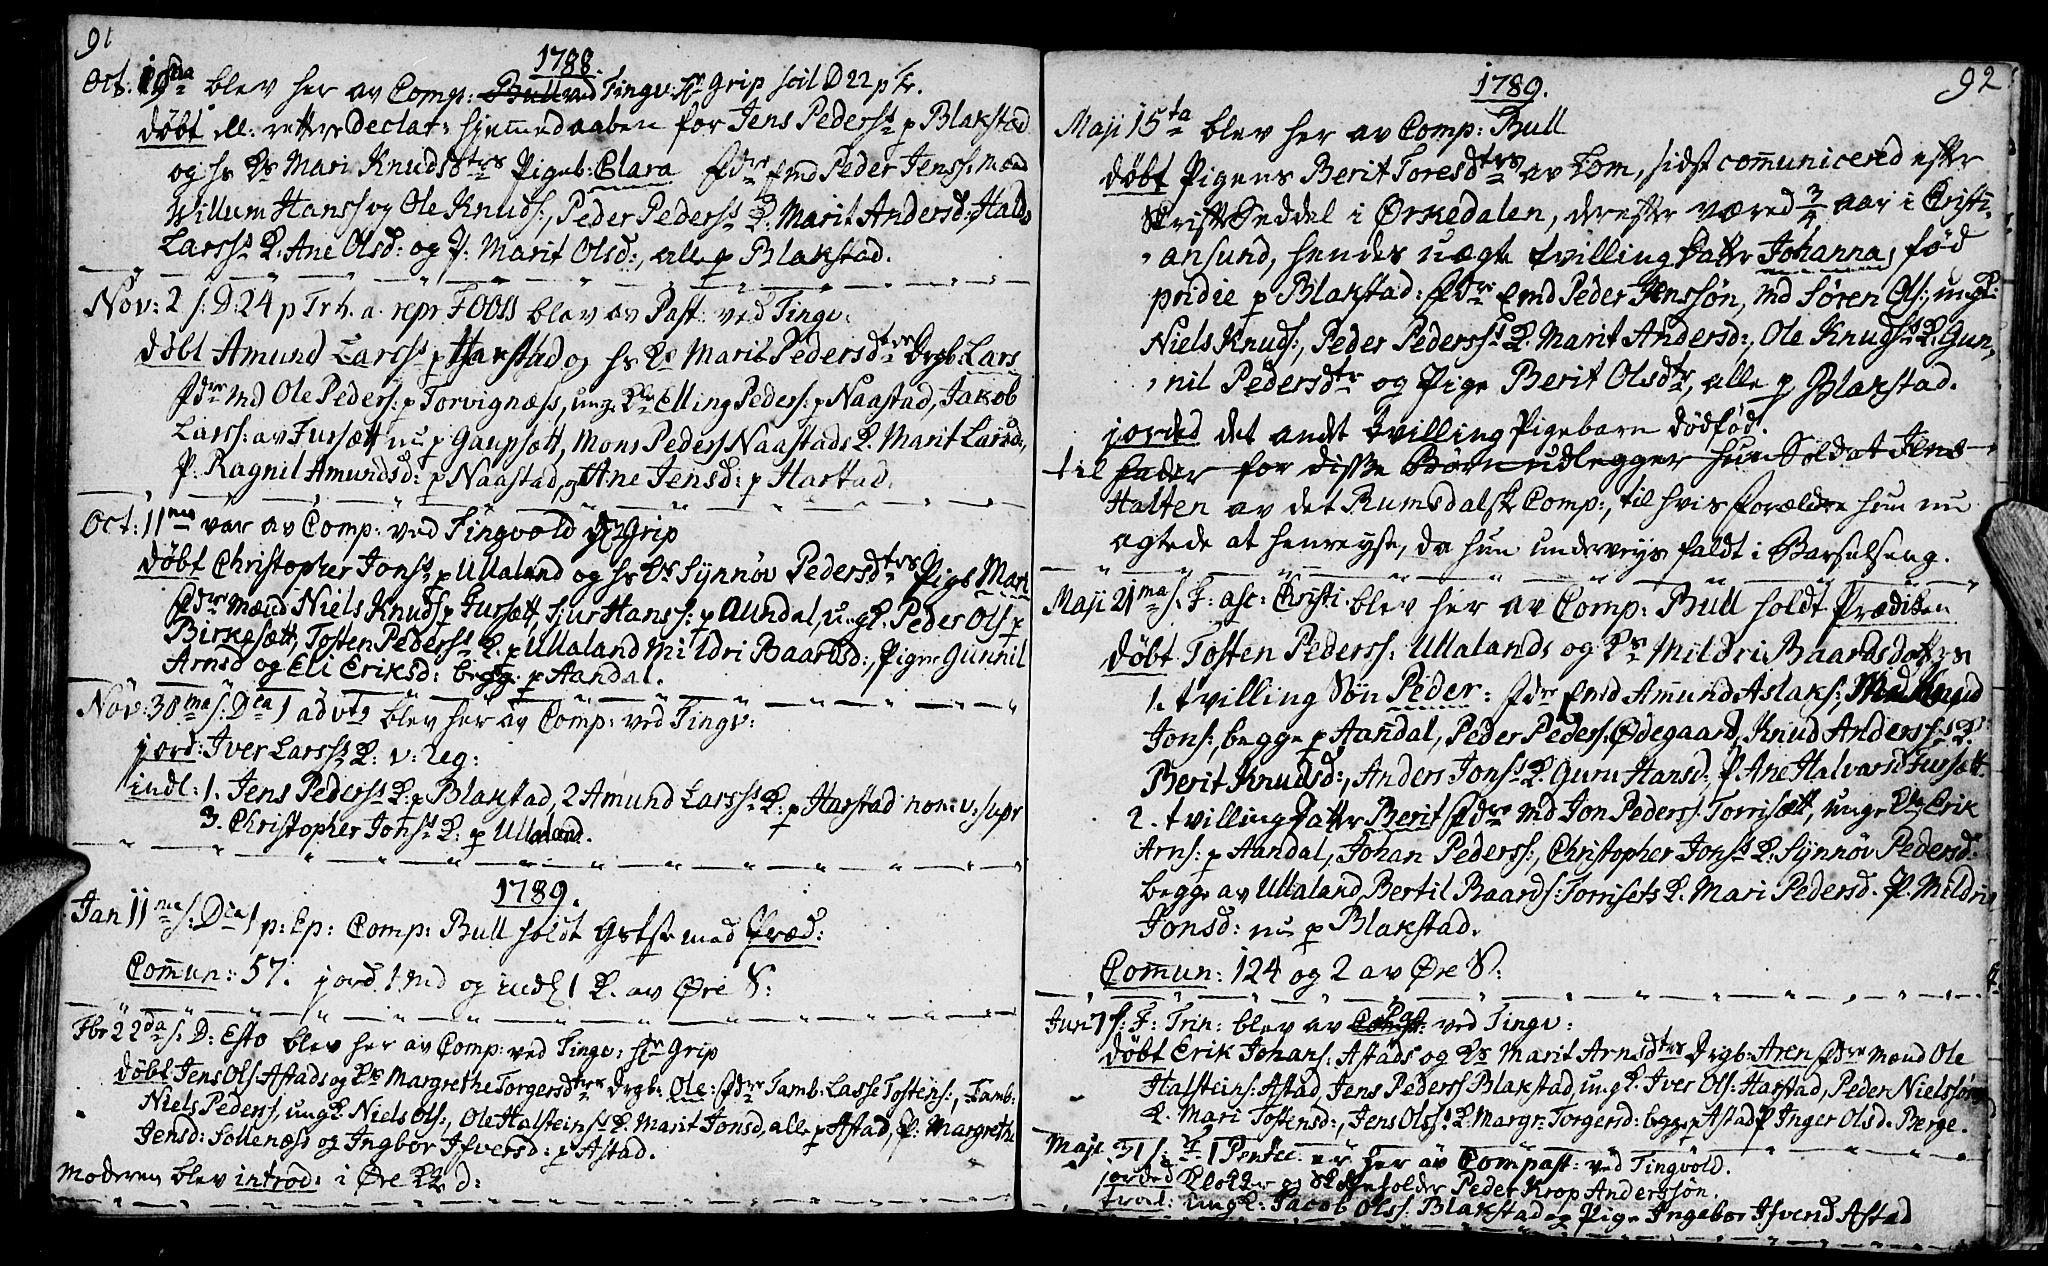 91
1788.
Oct: 19na blev her av Comp: Bull ved Tingv: Grip scil D 22 p Tr.
døbt ell: rettere Declat: hjemmedaaben for Jens Pederss p Blakstad
og hs Ks Mari Knudsdtrs Pigeb: Clara Fdre Emd Peder Jenss: Mænd
Willum Hanss og Ole Knuds:, Peder Pederss K: Marit Andersd: Halds
Larss K: Ane Olsd: og P: Marit Olsd:, alle p Blakstad.
Nov: 2 s: D: 24 p Tr h. a. repr blev av Past: ved Tingv:
døbt Amund Larss p Harstad og hs Ks Marit Pedersdtrs Drgb: Lars
Fdre Md Ole Peders: p Torvignæss, ung: Elling Peders: p Naastad, Jakob
Larss: av Fursætt nu p Gaupsætt, Mons Peders Naastads K. Marit Larsd:,
P. Ragnil Amundsd: p Naastad, og Ane Jensd: p Harstad.
Oct: 11ma var av Comp: ved Tingvold Grip
døbt Christopher Jonss p Ullaland og hs Ks Synnøv Pedersdtrs Pigb Mari
Fdre Mænd Niels Knuds p Fursætt, Siur Hanss: p Aundal, ungK: Peder Ols p
Birkesætt, Tosten Pederss K. p Ullaland Mildri Baarsd:, Piger Gunnil
Arnsd og Eli Eriksd: begge p Aandal.
Nov: 30ma s: Dca 1 advts blev her av Comp: ved Tingv:
jord: Iver Larss K: v: Leg:
indl: 1. Jens Pederss K: p Blakstad, 2 Amund Larss K: p Harstad nom: v: supr
3. Christopher Jonss K: p Ullaland.
1789.
Jan 11ma s: Dca 1 p: Ep: Comp: Bull holdt Gstste med Præd:
Comun: 57. jord 1 Md og indl 1 K. av Øre S:
Fbr 22da s: D: Esto blev her av Comp: ved Tingv: Grip
døbt Jens Ols Astads og Ks Margrethe Torgersdtrs Drgb: Ole: Fdre Tamb: Lasse Tostens:, Tamb:
Niels Peders, ungK Niels Ols:, Ole Halstenss K. Marit Jonsd, alle p Astad, P: Margrethe
Jensd: Sollenæss og Ingbor Ifversd: p Astad.
Moderen blev introd: i Øre K d:
92
1789.
Maji 15ta blev her av Comp: Bull
døbt Pigens Berit Toresdtrs av Tom, sidst communicered efter
Skrifte Seddel i Ørkedalen, derefter væred 3/4 aar i Cristi,
,ansund, hendes uægte tvilling datter Johanna, fød
pridie p Blakstad: Fdre Emd Peder Jenssøn, Md Søren Ols:, ungK:
Niels Knuds:, Peder Pederss K. Marit Andersd:, Ole Knudss K. Gun,
,nil Pedersdtr og Pige Berit Olsdtr, alle p Blakstad.
jorded det andt tvilling Pigebarn dødfød.
til Fader for disse Børn udlegger hun Soldat Jens
Halten av det Rumsdalske Comp:, til hvis forældre hun nu
agtede at henreyse, da hun underveys faldt i Barselseng.
Maji 21ma s: F: asc: Christi blev her av Comp: Bull holdt Præditen
døbt Tosten Pederss: Ullalands og Ks Mildri Baardsdotters
1. tvilling Søn Peder: Fdr Emd Amund Aslaks:, Md Knud
Jons:, begge p Aandal, Peder Peders: Ødegaard, Knud Anderss: K:
Berit Knudsd:, Anders Jonss K. Guru Hansd:, P. Ane Halvarsd Fursætt.
2. tvilling Datter Berit Fdre Md Jon Peders: Torrisætt, ungeKle Erik
Arns: p Aandal, Johan Pederss:, Christopher Jonss K: Synnøv Pedersd:
begge av Ullaland, Bertil Baards: Torrisets K. Mari Pedersd. P. Mildri
Jonsd: nu p Blakstad.
Comun: 124 og 2 av Øre S:
Jun 7 s: F: Trin: blev av Past: ved Tingv:
døbt Erik Johans: Astads og Ks Marit Arnsdtrs Drgb: Aren Fdre Mænd Ole
Halsteins: Astad, Jens Pederss Blakstad, ungK. Iver Ols: Harstad, Peder Nielssøns
K. Mari Tostensd:, Jens Olss K Margr: Torgersd: begge p Astad P Inger Olsd. Berge.
Maji 31 s: F 1 Pentec: er her av Compast: ved Tingvold.
jorded Klokker og Skoleholder Peder Krop Anderssøn.
trol: ungK: Jacob Olss: Blakstad og Pige Ingebor Ifversd Astad